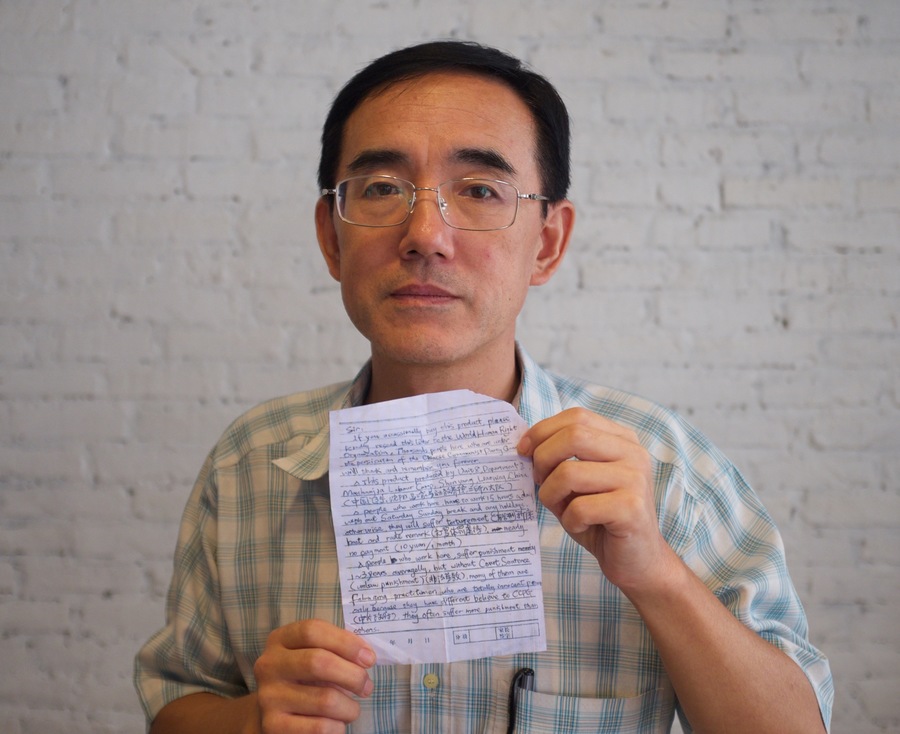 Sir,
If you occasionally buy this product, please
kindly resend this letter to the World Human Right
Organization. Thousands people here who are under
the persecution of the Chinese Communist Party
will thank and remember you forever.
This product produced by Unit 8, Department 2,
Masanjia Labour Camp, Shenyang, Liaoning, China
(中国,辽宁,沈阳,马三家
people who work here, have to work 15 hours a day
without Saturday Sunday break and any holidays,
otherwise, they will suffer torturement
beat and rude remark nearly
no payment (10 yuan/1 month)
people who work here, suffer punishment
1~3 years averagely, but without Court Sentence
(unlaw punishment) many of them are
Falungong practitioner, who are totally innocent people
only because they have different believe to CCPG
they often suffer more punishment than
others.
年 月 日